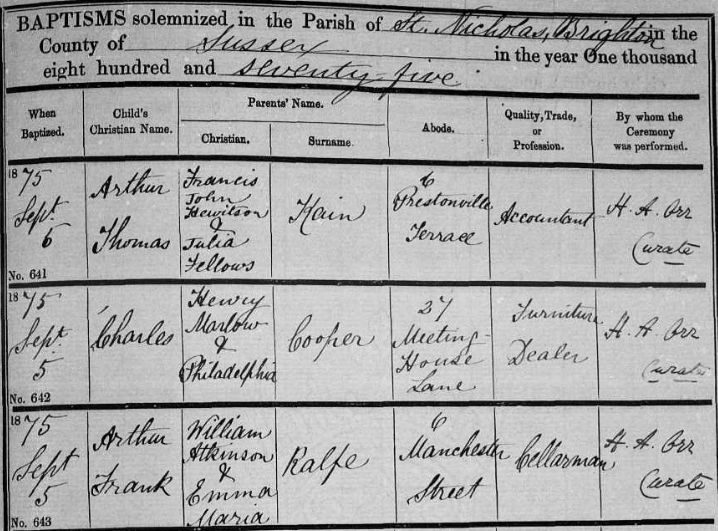 BAPTISMS solemnized in the Parish of St. Nicholas, Brighton in the
County of Sussex in the year One thousand
eight hundred and seventy-five
When Baptized.
Child's Christian Name.
Parents' Name.
Christian.
Surname.
Abode.
Quality, Trade, or Profession.
By whom the Ceremony was performed.
1875
Sept.
5
No. 641
Arthur
Thomas
Francis
John
Hewitson
&
Julia
Fellows
Kain
6
Prestonville
Terrace
Accountant
H. A. Orr
Curate
1875
Sept.
5
No. 642
Charles
Henry
Marlow
&
Philadelphia
Cooper
37
Meeting
House
Lane
Furniture
Dealer
H. A. Orr
Curate
1875
Sept
5
No. 643
Arthur
Frank
William
Atkinson
&
Emma
Maria
Ralfe
6
Manchester
Street
Cellarman
H. A. Orr
Curate